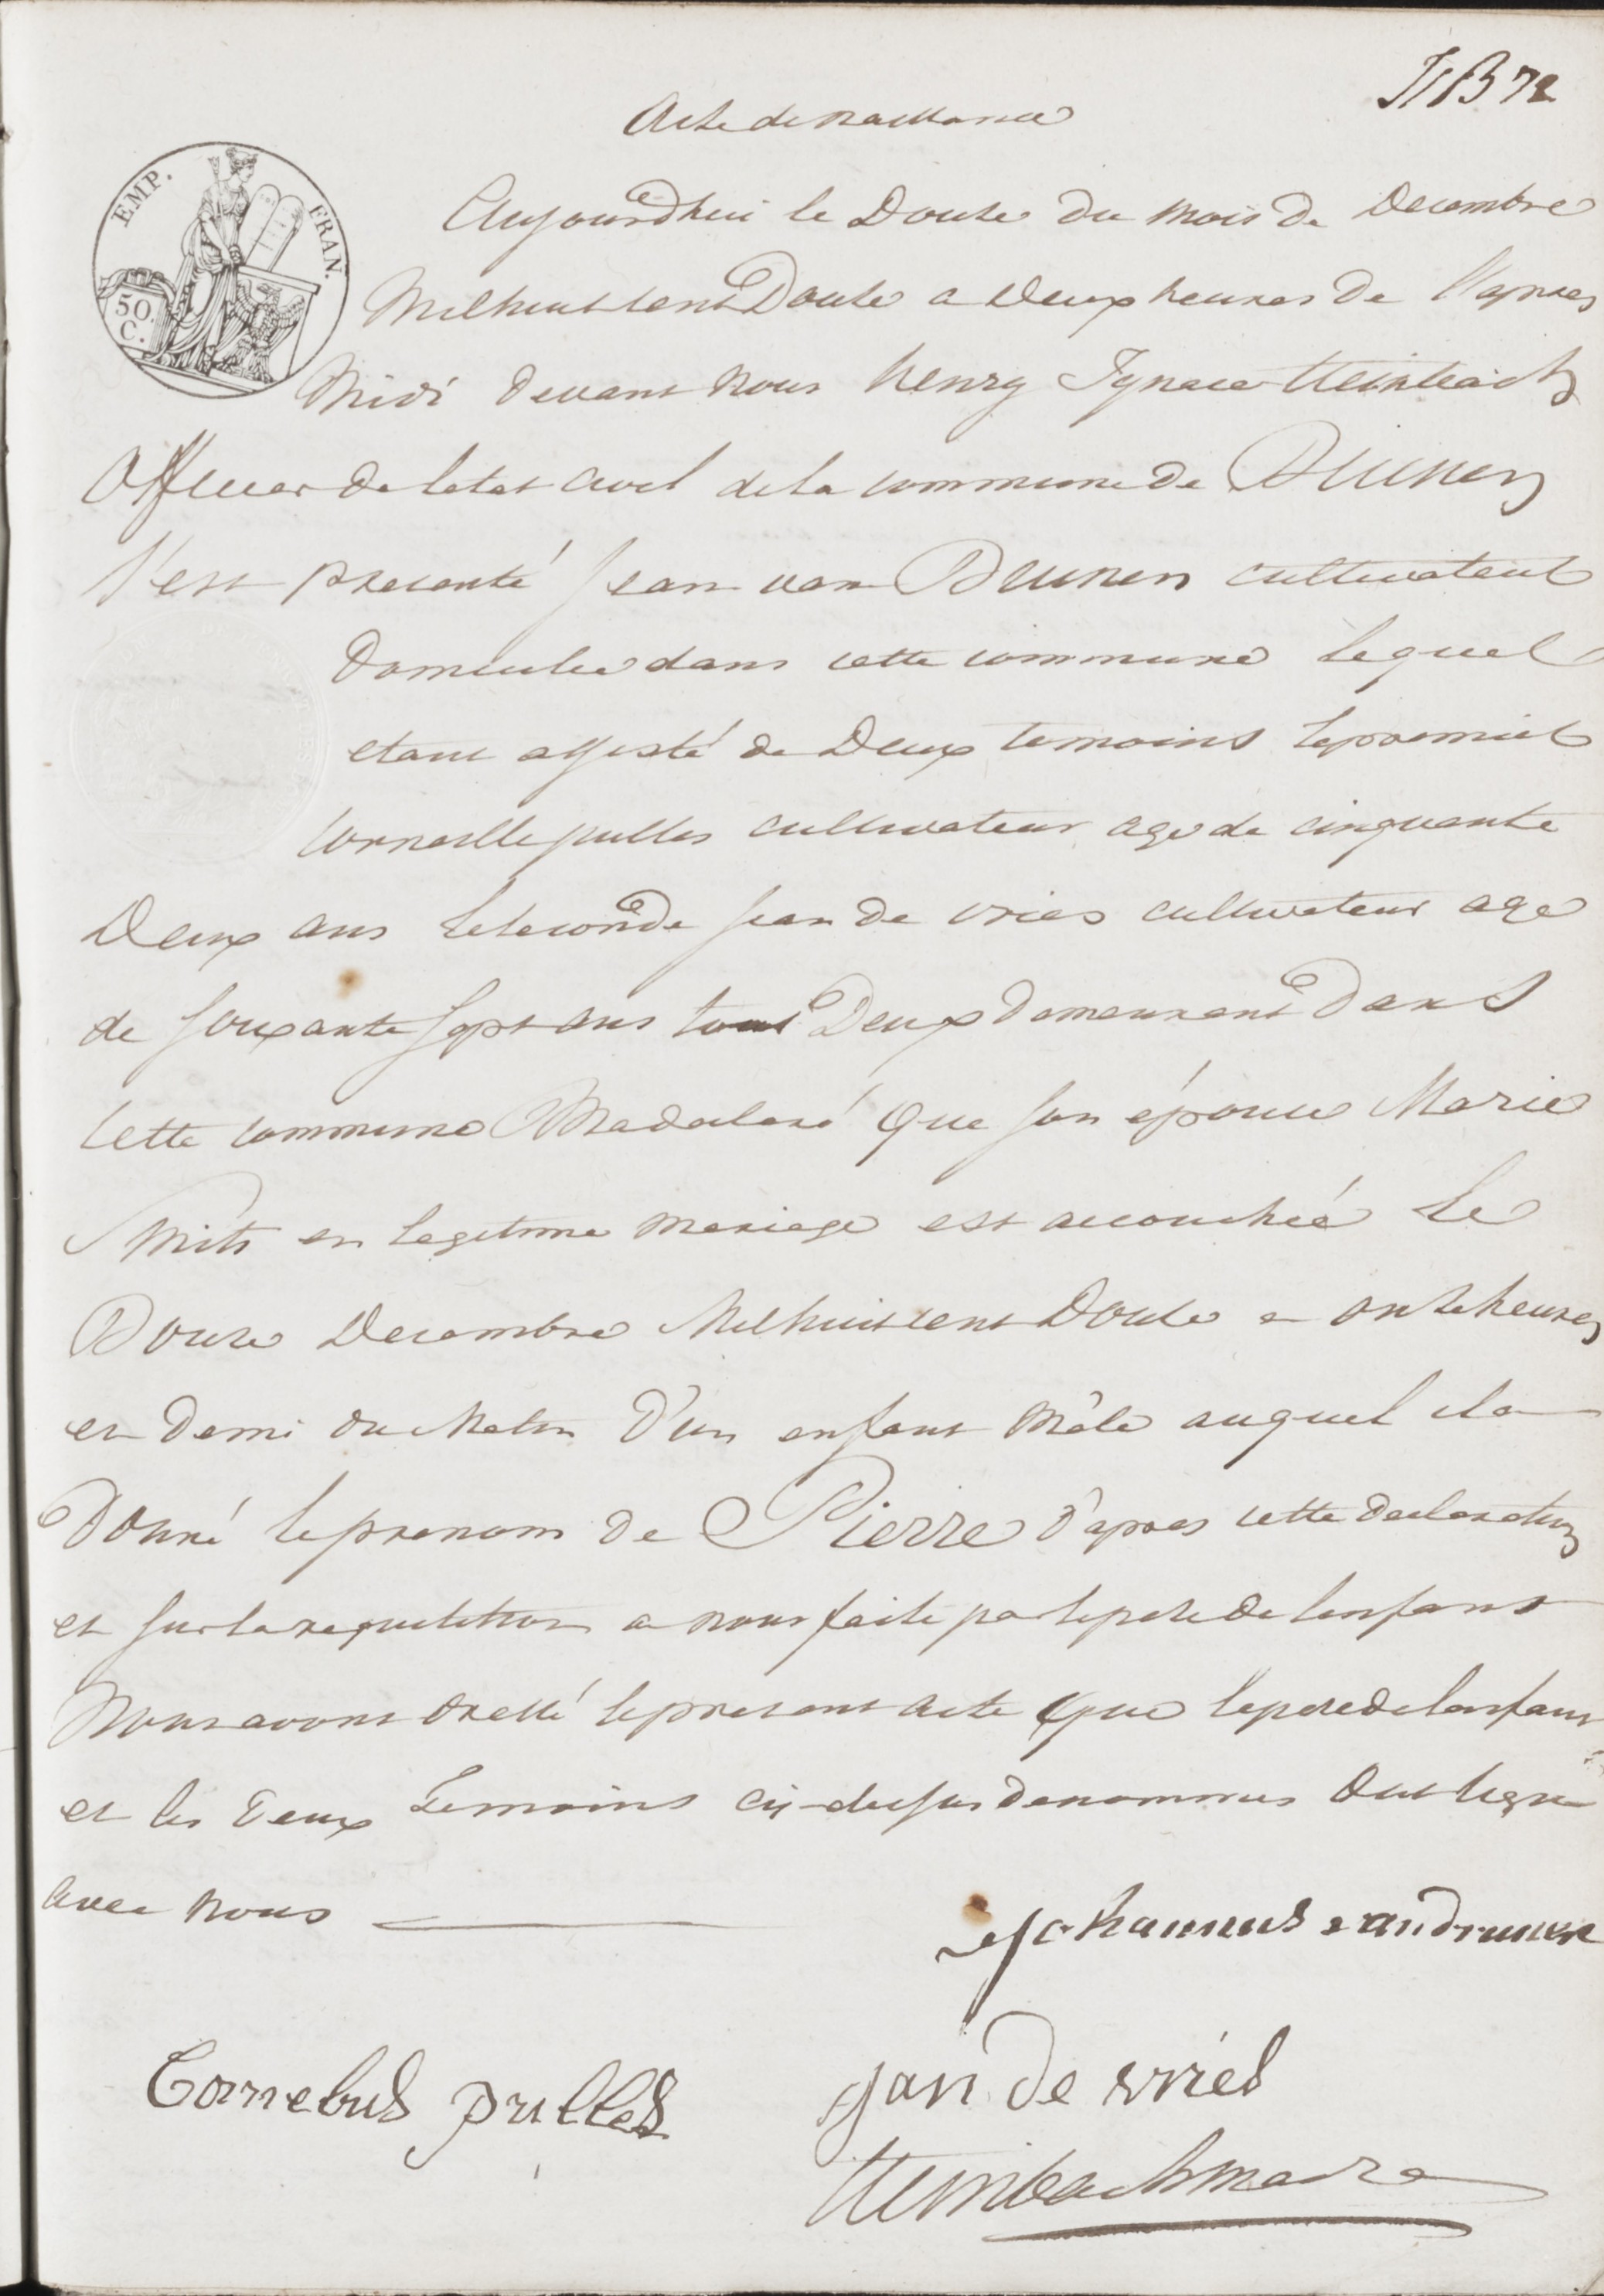 N 72
Acte de naissance
EMP. FRAN.
50. C.
Aujourdhui le Douze du mois de Decembre
Milhuitcent Douze a deux heures de l'apres
Midi devant nous henry Ignace Steinbach
Officier de letat civil de la commune de Drunen
s'est presenté Jean van Drunen cultivateur
domicilie dans cette commune lequel
etant assisté de Deux temoins le premier
Corneille pulles cultivateur age de cinquante
Deux ans le seconde Jean de vries cultivateur age
de soixante sept ans tous Deux demeurant dans
cette commune M'a declaré que son épouse Marie
Smits en legitime mariage est accouchée le
Douze Decembre Milhuitcent Douze a onze heures
et demi du Matin d'un enfant mâle auquel il a
donné le prenom de Pierre d'apres cette declaration
et sur la requisition a nous faite par le pere de lenfant
Nous avons dressé le present acte que le pere de lenfant
et les deux temoins ci-dessus denommes ont signe
avec nous
Johannus van drunen
Cornelus pulles
Jan de vries
Steinbach maire